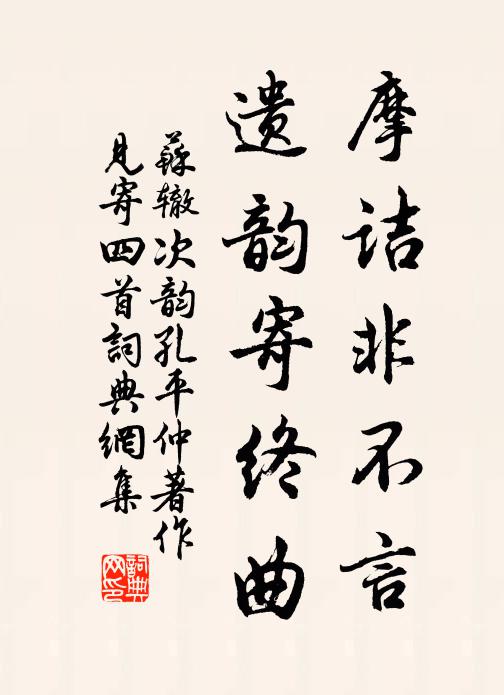 摩诘非不言
遗韵寄终曲
蘇辙次韵孔平仲著作
见寄四首詞典網集
詞典网印